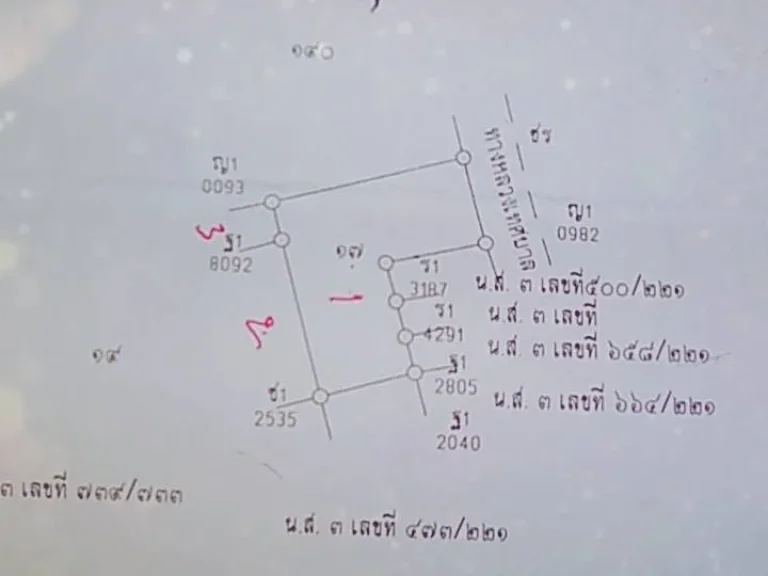 ๑๙๐
ชร
ทางหลวงเทศบาล
ญ1
0093
ญ1
0982
ฐ1
8092
๑๗
ร1
3187
น.ส. ๓ เลขที่ ๕๐๐/๒๒๑
ร1
4291
น.ส. ๓ เลขที่
น.ส. ๓ เลขที่ ๖๕๘/๒๒๑
๑๙
ฐ1
2805
ช1
2535
น.ส. ๓ เลขที่ ๖๖๔/๒๒๑
ฐ1
2040
๓ เลขที่ ๗๓๙/๗๓๓
น.ส. ๓ เลขที่ ๔๗๓/๒๒๑